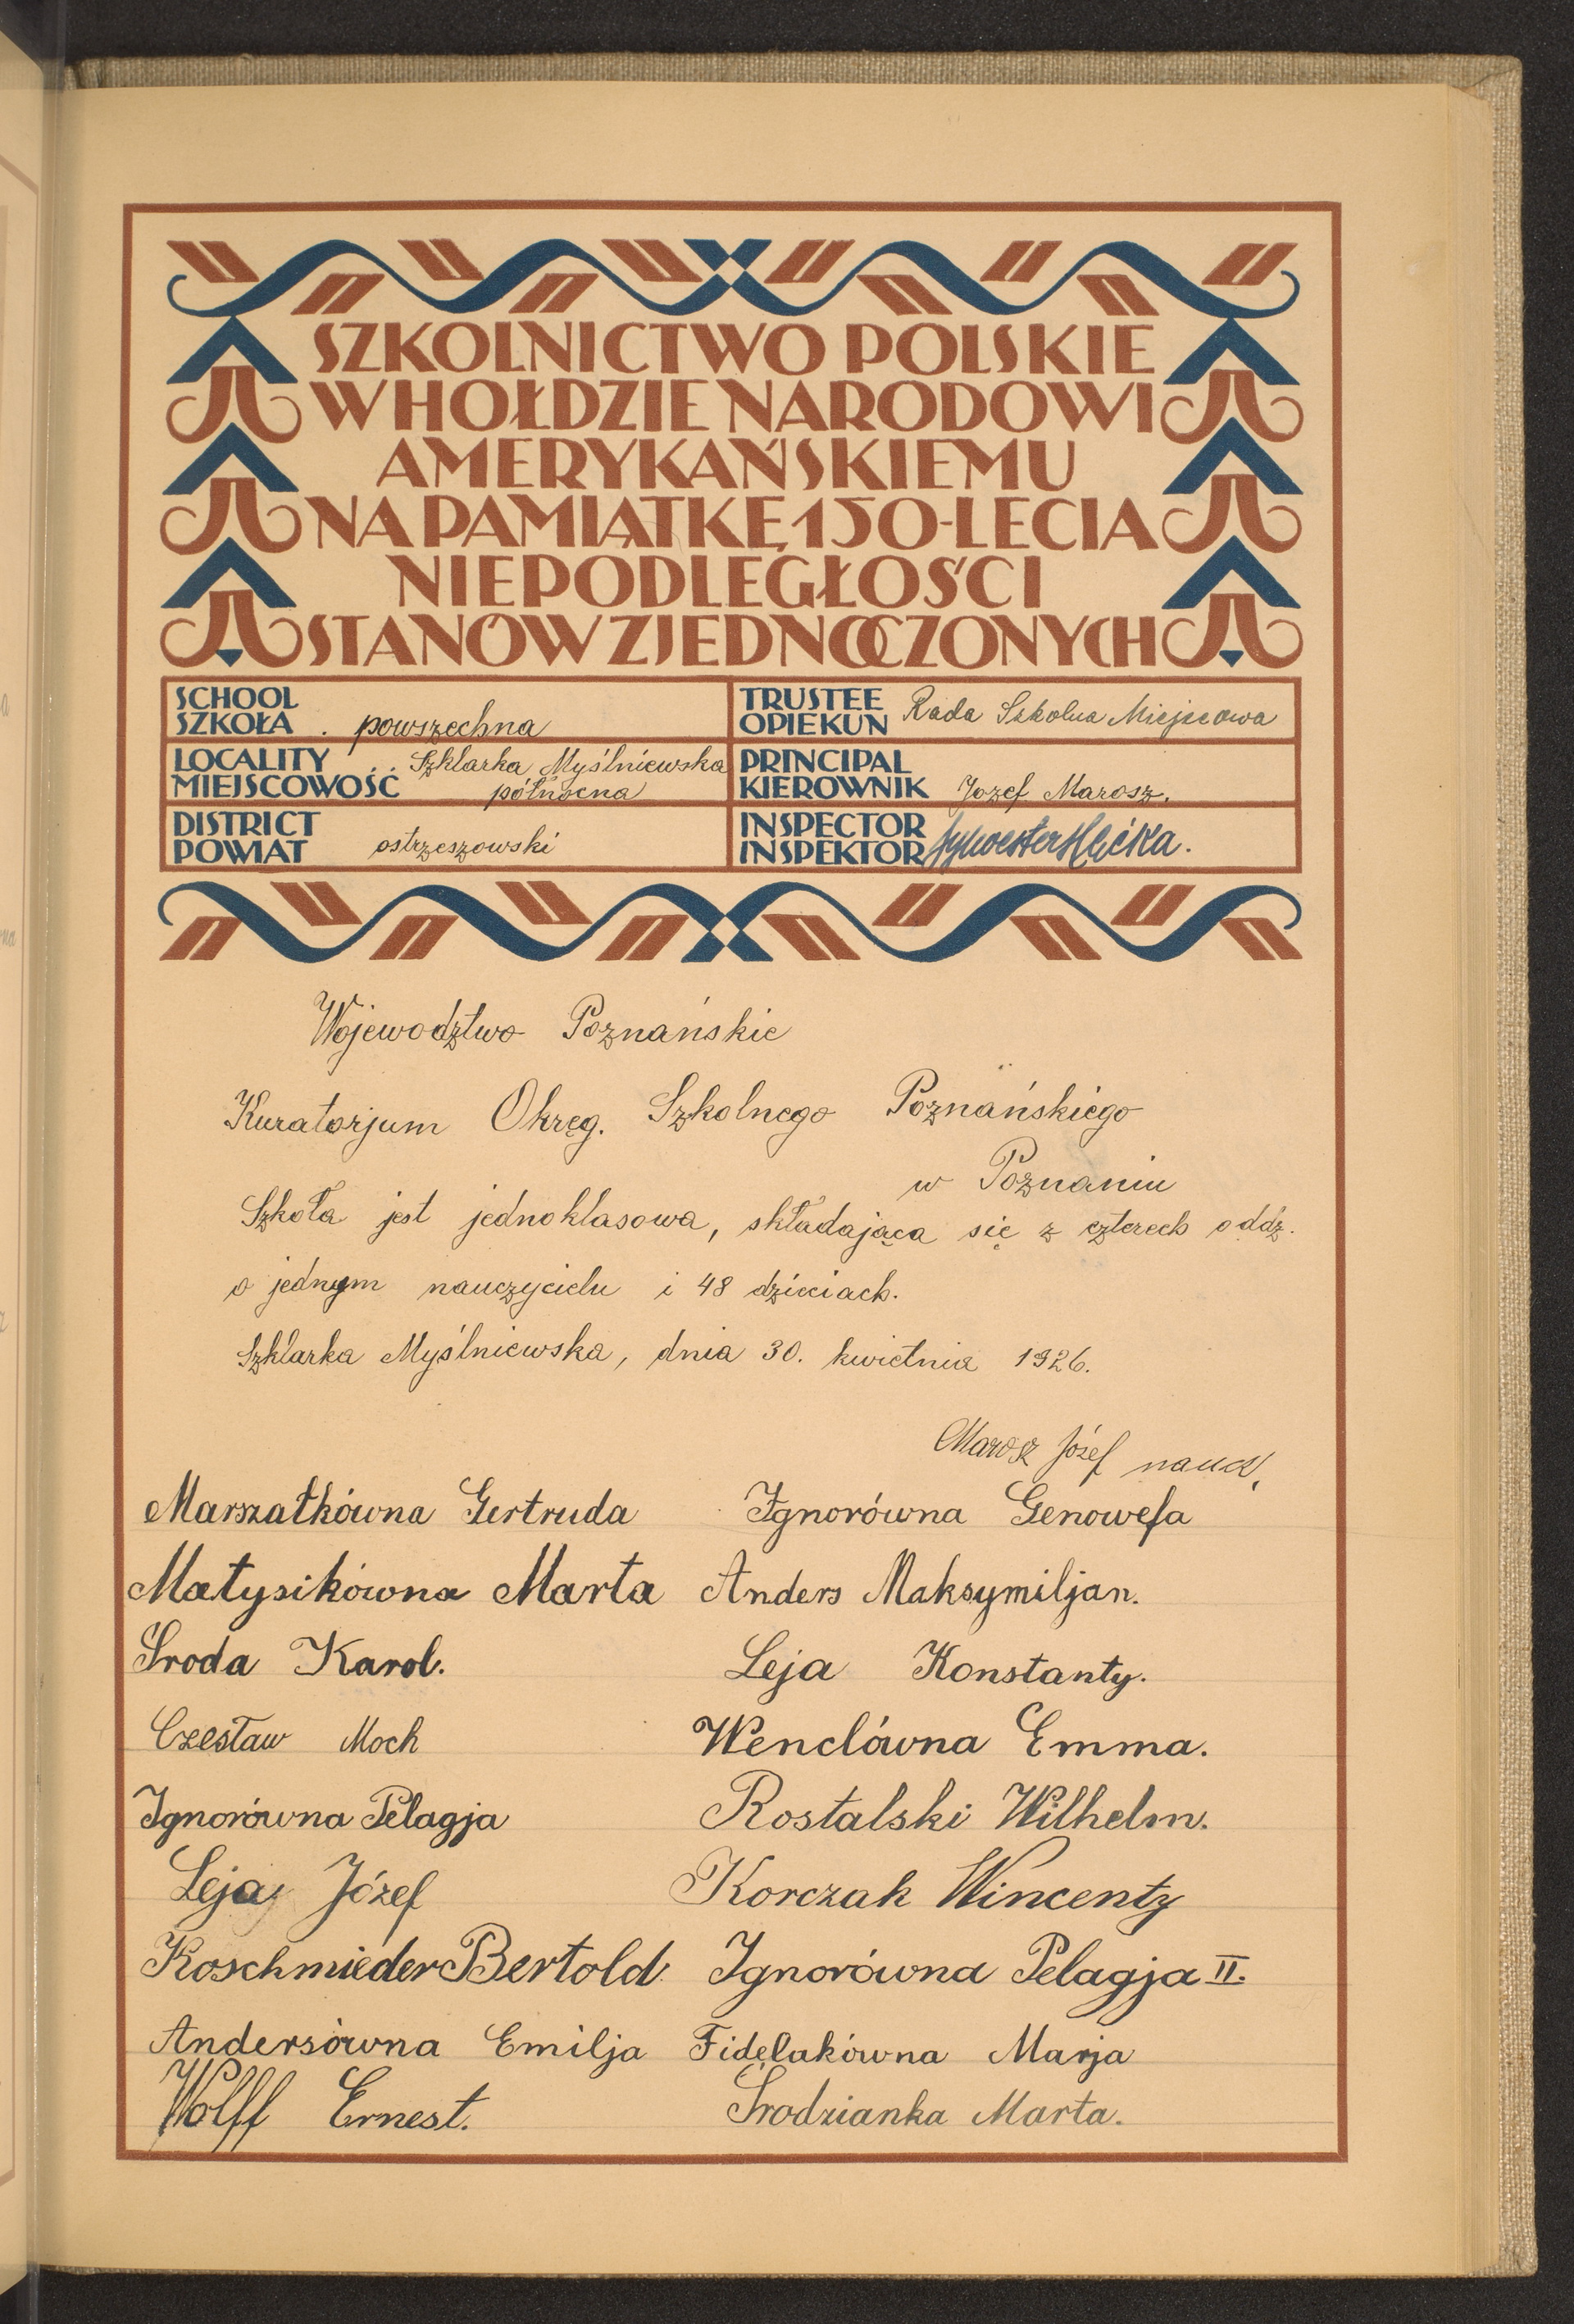 SZKOLNICTWO POLSKIE
W HOŁDZIE NARODOWI
AMERYKAŃSKIEMU
NA PAMIĄTKĘ 150-LECIA
NIEPODLEGŁOŚCI
STANÓW ZJEDNOCZONYCH
SCHOOL
SZKOŁA . powszechna
TRUSTEE
OPIEKUN Rada Szkolna Miejscowa
LOCALITY
MIEJSCOWOŚĆ . . Szklarka Myślniewska
północna
PRINCIPAL
KIEROWNIK Jozef Marosz.
DISTRICT
POWIAT ostrzeszowski
INSPECTOR
INSPEKTOR Sylwester
Województwo Poznańskie
Kuratorjum Okręg. Szkolnego Poznańskiego
w Poznaniu
Szkoła jest jednoklasowa, składająca się z czterech oddz.
o jednym nauczycielu i 48 dzieciach.
Szklarka Myślniewska, dnia 30. kwietnia 1926.
Marosz Józef naucz.
Marszałkówna Gertruda
Ignorówna Genowefa
Matysikówna Marta
Anders Maksymiljan.
Środa Karol.
Leja Konstanty.
Czesław Moch
Wenclówna Emma.
Ignorówna Pelagja
Rostalski Wilhelm.
Leja Józef
Korczak Wincenty
Koschmieder Bertold
Ignorówna Pelagja II.
Andersówna Emilja
Fidelakówna Marja
Wolff Ernest.
Środzianka Marta.